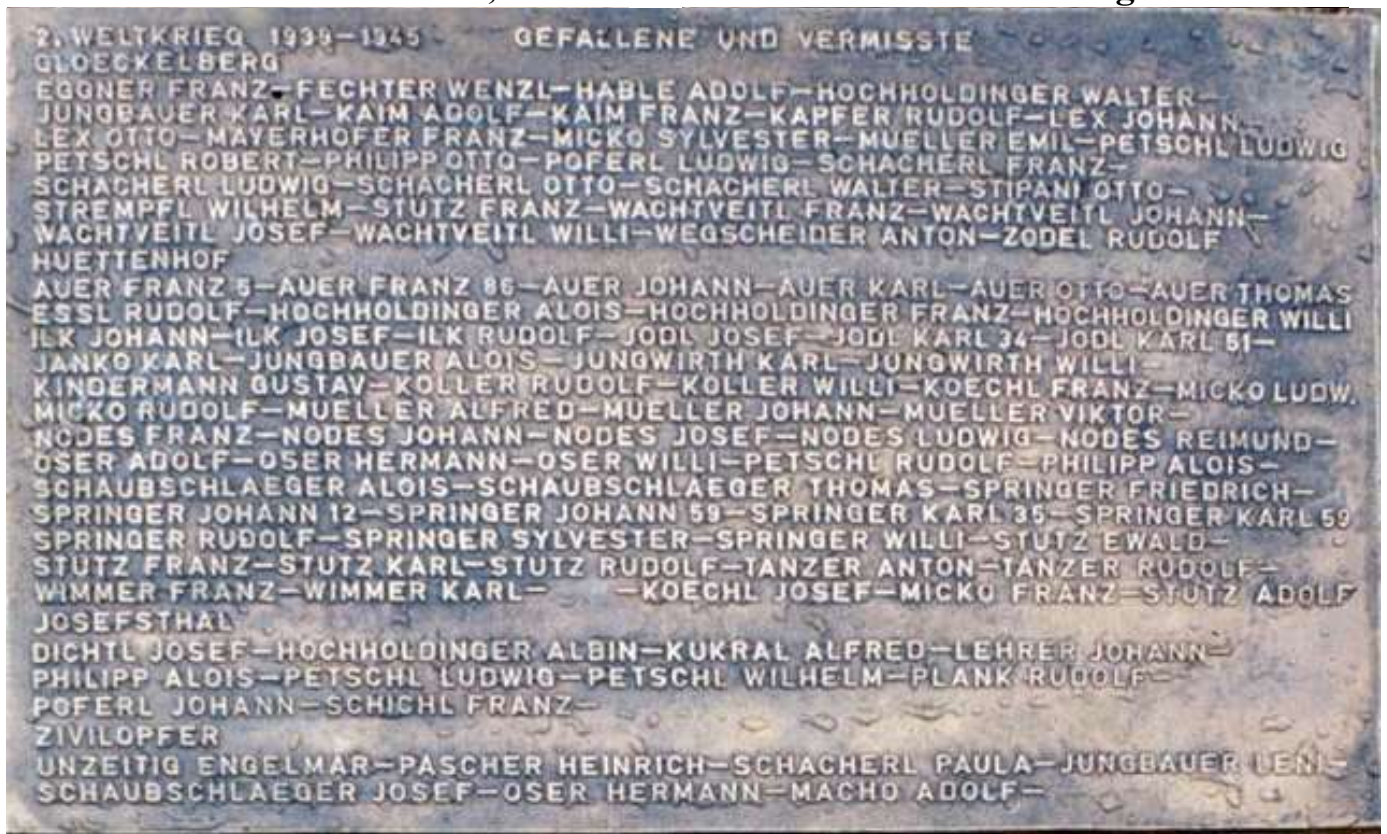 2. WELTKRIEG 1939-1945 GEFALLENE UND VERMISSTE
GLOECKELBERG
EGGNER FRANZ-FECHTER WENZL-HABLE ADOLF-HOCHHOLDINGER WALTER-
JUNGBAUER KARL-KAIM ADOLF-KAIM FRANZ-KAPFER RUDOLF-LEX JOHANN-
LEX OTTO-MAYERHOFER FRANZ-MICKO SYLVESTER-MUELLER EMIL-PETSCHL LUDWIG
PETSCHL ROBERT-PHILIPP OTTO-POFERL LUDWIG-SCHACHERL FRANZ-
SCHACHERL LUDWIG-SCHACHERL OTTO-SCHACHERL WALTER-STIPANI OTTO-
STREMPFL WILHELM-STUTZ FRANZ-WACHTVEITL FRANZ-WACHTVEITL JOHANN-
WACHTVEITL JOSEF-WACHTVEITL WILLI-WEGSCHEIDER ANTON-ZODEL RUDOLF
HUETTENHOF
AUER FRANZ 5-AUER FRANZ 86-AUER JOHANN-AUER KARL-AUER OTTO-AUER THOMAS
ESSL RUDOLF-HOCHHOLDINGER ALOIS-HOCHHOLDINGER FRANZ-HOCHHOLDINGER WILLI
ILK JOHANN-ILK JOSEF-ILK RUDOLF-JODL JOSEF-JODL KARL 34-JODL KARL 51-
JANKO KARL-JUNGBAUER ALOIS-JUNGWIRTH KARL-JUNGWIRTH WILLI-
KINDERMANN GUSTAV-KOLLER RUDOLF-KOLLER WILLI-KOECHL FRANZ-MICKO LUDW.
MICKO RUDOLF-MUELLER ALFRED-MUELLER JOHANN-MUELLER VIKTOR-
NODES FRANZ-NODES JOHANN-NODES JOSEF-NODES LUDWIG-NODES REIMUND-
OSER ADOLF-OSER HERMANN-OSER WILLI-PETSCHL RUDOLF-PHILIPP ALOIS-
SCHAUBSCHLAEGER ALOIS-SCHAUBSCHLAEGER THOMAS-SPRINGER FRIEDRICH-
SPRINGER JOHANN 12-SPRINGER JOHANN 59-SPRINGER KARL 35-SPRINGER KARL 59
SPRINGER RUDOLF-SPRINGER SYLVESTER-SPRINGER WILLI-STUTZ EWALD-
STUTZ FRANZ-STUTZ KARL-STUTZ RUDOLF-TANZER ANTON-TANZER RUDOLF-
WIMMER FRANZ-WIMMER KARL- -KOECHL JOSEF-MICKO FRANZ-STUTZ ADOLF
JOSEFSTHAL
DICHTL JOSEF-HOCHHOLDINGER ALBIN-KUKRAL ALFRED-LEHRER JOHANN-
PHILIPP ALOIS-PETSCHL LUDWIG-PETSCHL WILHELM-PLANK RUDOLF-
POFERL JOHANN-SCHICHL FRANZ-
ZIVILOPFER
UNZEITIG ENGELMAR-PASCHER HEINRICH-SCHACHERL PAULA-JUNGBAUER LENI-
SCHAUBSCHLAEGER JOSEF-OSER HERMANN-MACHO ADOLF-